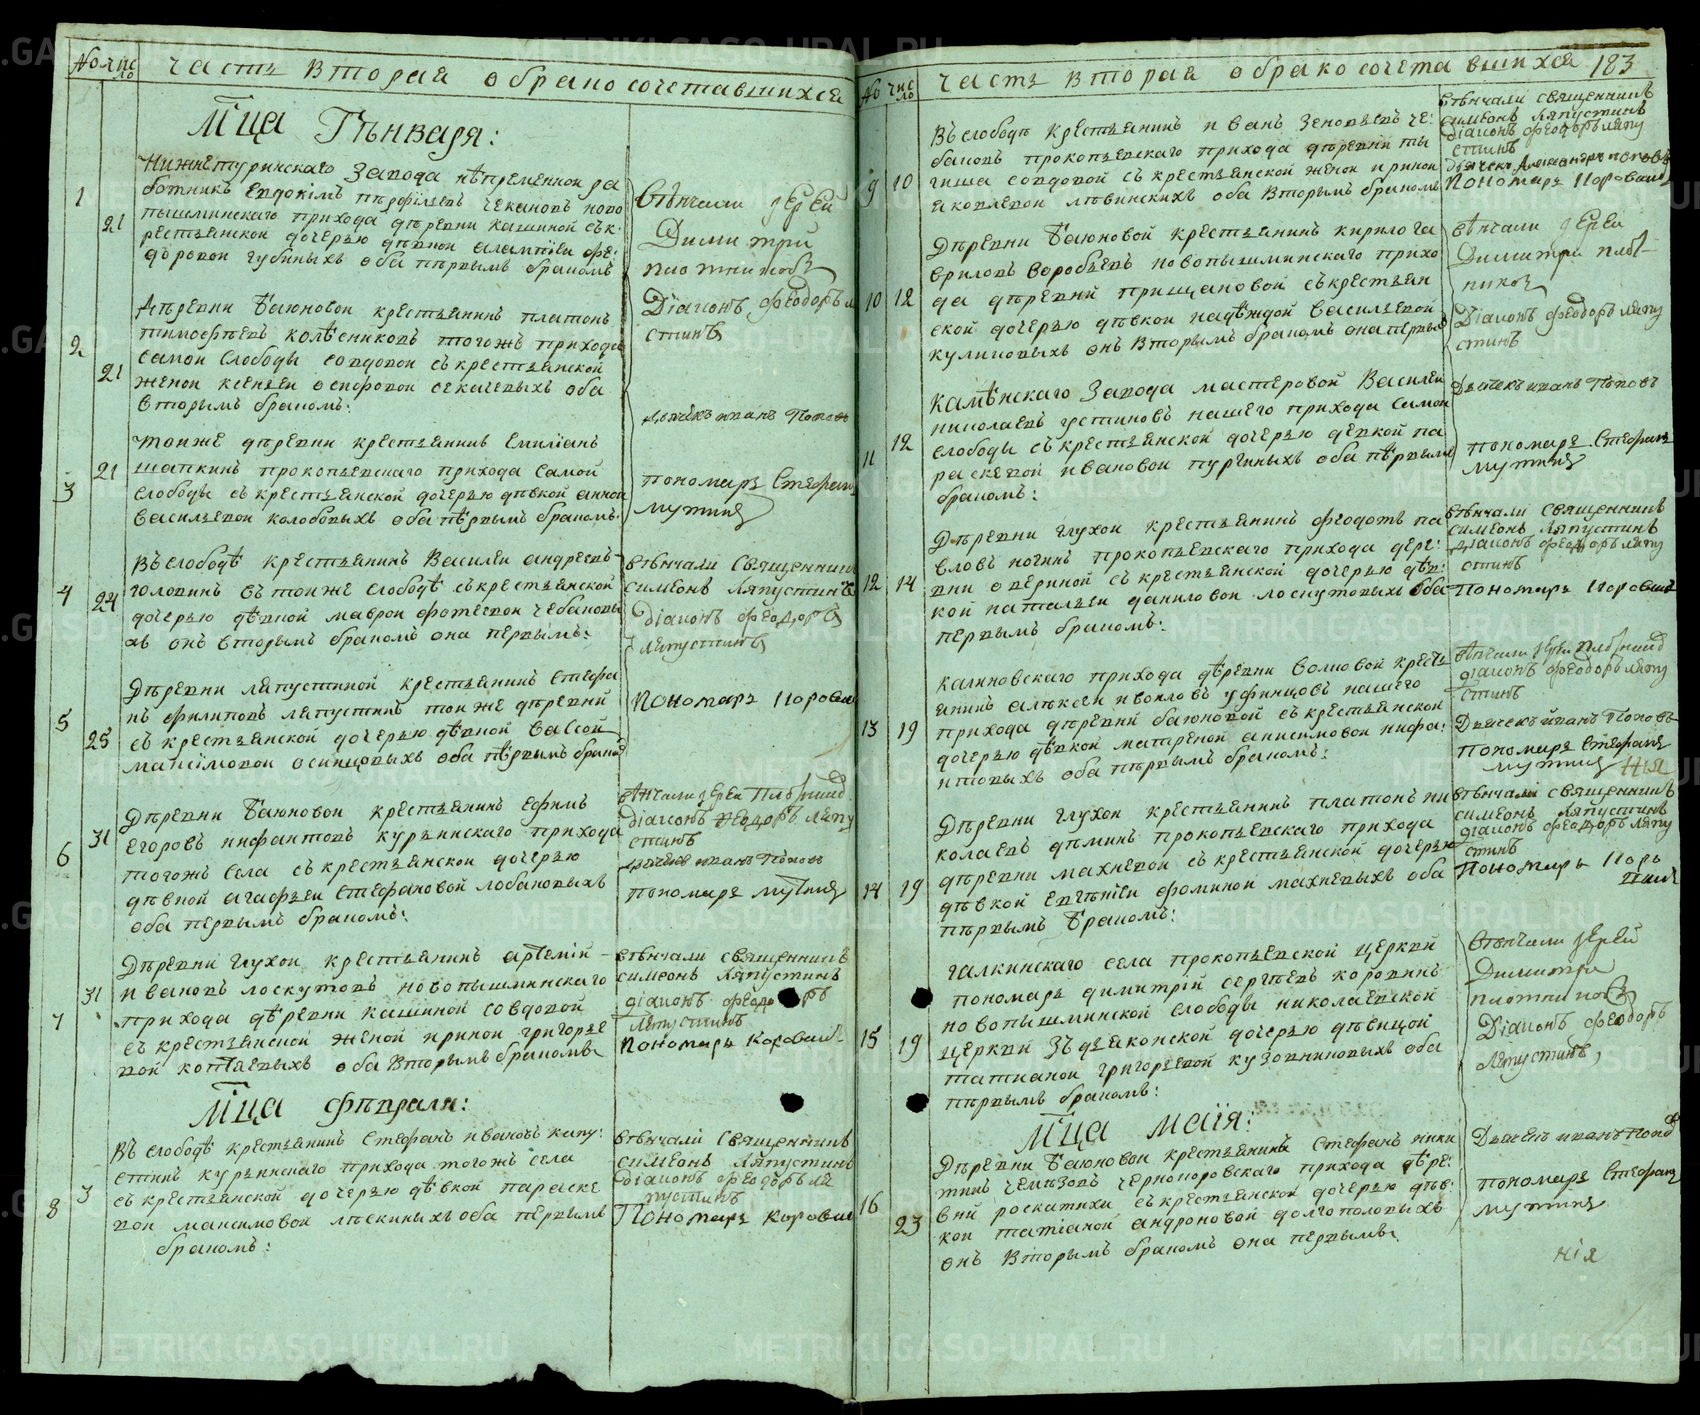 № число часть вторая о бракосочетавшихся
Мца Генваря:
1 21
Нижнетуринскаго Завода непременной ра
ботникъ Евдокимъ перфильевъ Чекановъ ново
пышминскаго прихода деревни кашиной съ к
рестьянской дочерью девкой
доровой губиныхъ оба первымъ бракомъ
Венчали Іерей
Димитрий
плотниковъ
Діаконъ Феодоръ ля
пустинъ
Дьячекъ иванъ Поповъ
пономарь Стефанъ
мутинъ
2 21
Деревни Баюновой крестьянинъ платонъ
тимофеевъ колесниковъ тогожъ прихода
самой слободы совдовой съ крестьянской
женой ксеньей осиповой секачевыхъ оба
вторымъ бракомъ:
3 21
тойже деревни крестьянинъ Емиліанъ
шапкинъ прокопьевскаго прихода самой
слободы съ крестьянской дочерью девкой анной
васильевой колобовыхъ оба первымъ бракомъ.
4 24
Въ слободѣ крестьянинъ Василей андреевъ
головинъ въ тойже слободѣ съ крестьянской
дочерью девкой маврой фотеевой чебановы
хъ онъ вторымъ бракомъ она первымъ:
венчали Священникъ
симеонъ Ляпустинъ
діаконъ феодоръ
ляпустинъ
Пономарь Коровин
5 25
Деревни ляпустиной крестьянинъ стефа
нъ филиповъ ляпустинъ тойже деревни
съ крестьянской дочерью девкой вассой
максимовой осинцовыхъ оба первымъ бракомъ
6 31
Деревни Баюновой крестьянинъ ефимъ
егоровъ нифантовъ курьинскаго прихода
тогожъ села съ крестьянской дочерью
девкой агафьей стефановой лобановыхъ
оба первымъ бракомъ:
венчали Іерей
діаконъ феодоръ ляпу
стинъ
дьячекъ иванъ Поповъ
пономарь мутинъ
7 31
Деревни глухой крестьянинъ артемій
ивановъ лоскутовъ новопышминскаго
прихода деревни кашиной совдовой
съ крестьянской женой ириной григорье
вой коптяевыхъ оба вторымъ бракомъ
венчали священникъ
симеонъ Ляпустинъ
діаконъ феодоръ
ляпустинъ
пономарь Коровин
Мца февраля:
8 3
Въ слободѣ крестьянинъ Стефанъ ивановъ капу
стинъ курьинскаго прихода тогожъ села
съ крестьянской дочерью девкой параске
вой максимовой пескиныхъ оба первымъ
бракомъ:
венчали Священникъ
симеонъ Ляпустинъ
діаконъ феодоръ ля
пустинъ
Пономарь коровин
№ число часть вторая о бракосочетавшихся 183
9 10
Въ слободѣ крестьянинъ иванъ Зеновьевъ че
бановъ прокопьевскаго прихода деревни ты
гиша совдовой съ крестьянской женой ириной
яковлевой левинскихъ оба вторымъ бракомъ
венчали священникъ
симеонъ Ляпустинъ
діаконъ феодоръ ляпу
стинъ
дьячекъ Александръ поповъ
пономарь Коровин
10 12
Деревни Баюновой крестьянинъ кирило га
вриловъ Воробьевъ новопышминскаго прихо
да деревни прищановой съ крестьян
ской дочерью девкой надеждой василевой
куликовыхъ онъ вторымъ бракомъ она первымъ
венчали Іерей
Димитрий плот
никовъ
Діаконъ феодоръ ляпу
стинъ
11 12
Каменскаго Завода мастеровой Василей
николаевъ устиновъ нашего прихода самой
слободы съ крестьянской дочерью девкой па
раскевой ивановой пургиныхъ оба первымъ
бракомъ:
Дьячекъ иванъ Поповъ
пономарь Стефанъ
мутинъ
12 14
Деревни глухой крестьянинъ феодотъ па
вловъ ногинъ прокопьевскаго прихода дере
вни озериной съ крестьянской дочерью дев
кой натальей даниловой лоскутовыхъ оба
первымъ бракомъ:
венчали священникъ
симеонъ Ляпустинъ
діаконъ феодоръ ляпу
стинъ
Пономарь Коровин
13 19
калиновскаго прихода деревни волковой кресть
янинъ алексей ивойловъ уфинцовъ нашего
прихода деревни баюновой съ крестьянской
дочерью девкой матреной анисимовой нифа
нтовыхъ оба первымъ бракомъ:
венчали Іерей
діаконъ феодоръ ляпу
стинъ
Дьячекъ иванъ Поповъ
пономарь Стефанъ
мутинъ
14 19
Деревни глухой крестьянинъ платонъ ни
колаевъ деминъ прокопьевскаго прихода
деревни махневой съ крестьянской дочерью
девкой евгеніей фоминой махневыхъ оба
первымъ бракомъ:
венчали священникъ
симеонъ Ляпустинъ
діаконъ феодоръ ляпу
стинъ
Пономарь Коро
вин
15 19
галкинскаго села прокопьевской церкви
пономарь димитрій сергеевъ коровинъ
новопышминской слободы николаевской
церкви зъ дьяконской дочерью девицой
татианой григорьевой кузовниковыхъ оба
первымъ бракомъ:
Венчали Іерей
Димитрий
плотниковъ
Діаконъ феодоръ
Ляпустинъ,
Мца маія:
16 23
Деревни Баюновой крестьянинъ Стефанъ ники
тинъ чемезовъ черноноровскаго прихода дере
вни роскатихи съ крестьянской дочерью дев
кой татіаной андроновой долгополовыхъ
онъ вторымъ бракомъ она первымъ
Дьячекъ иванъ Поповъ
пономарь Стефанъ
мутинъ
нія